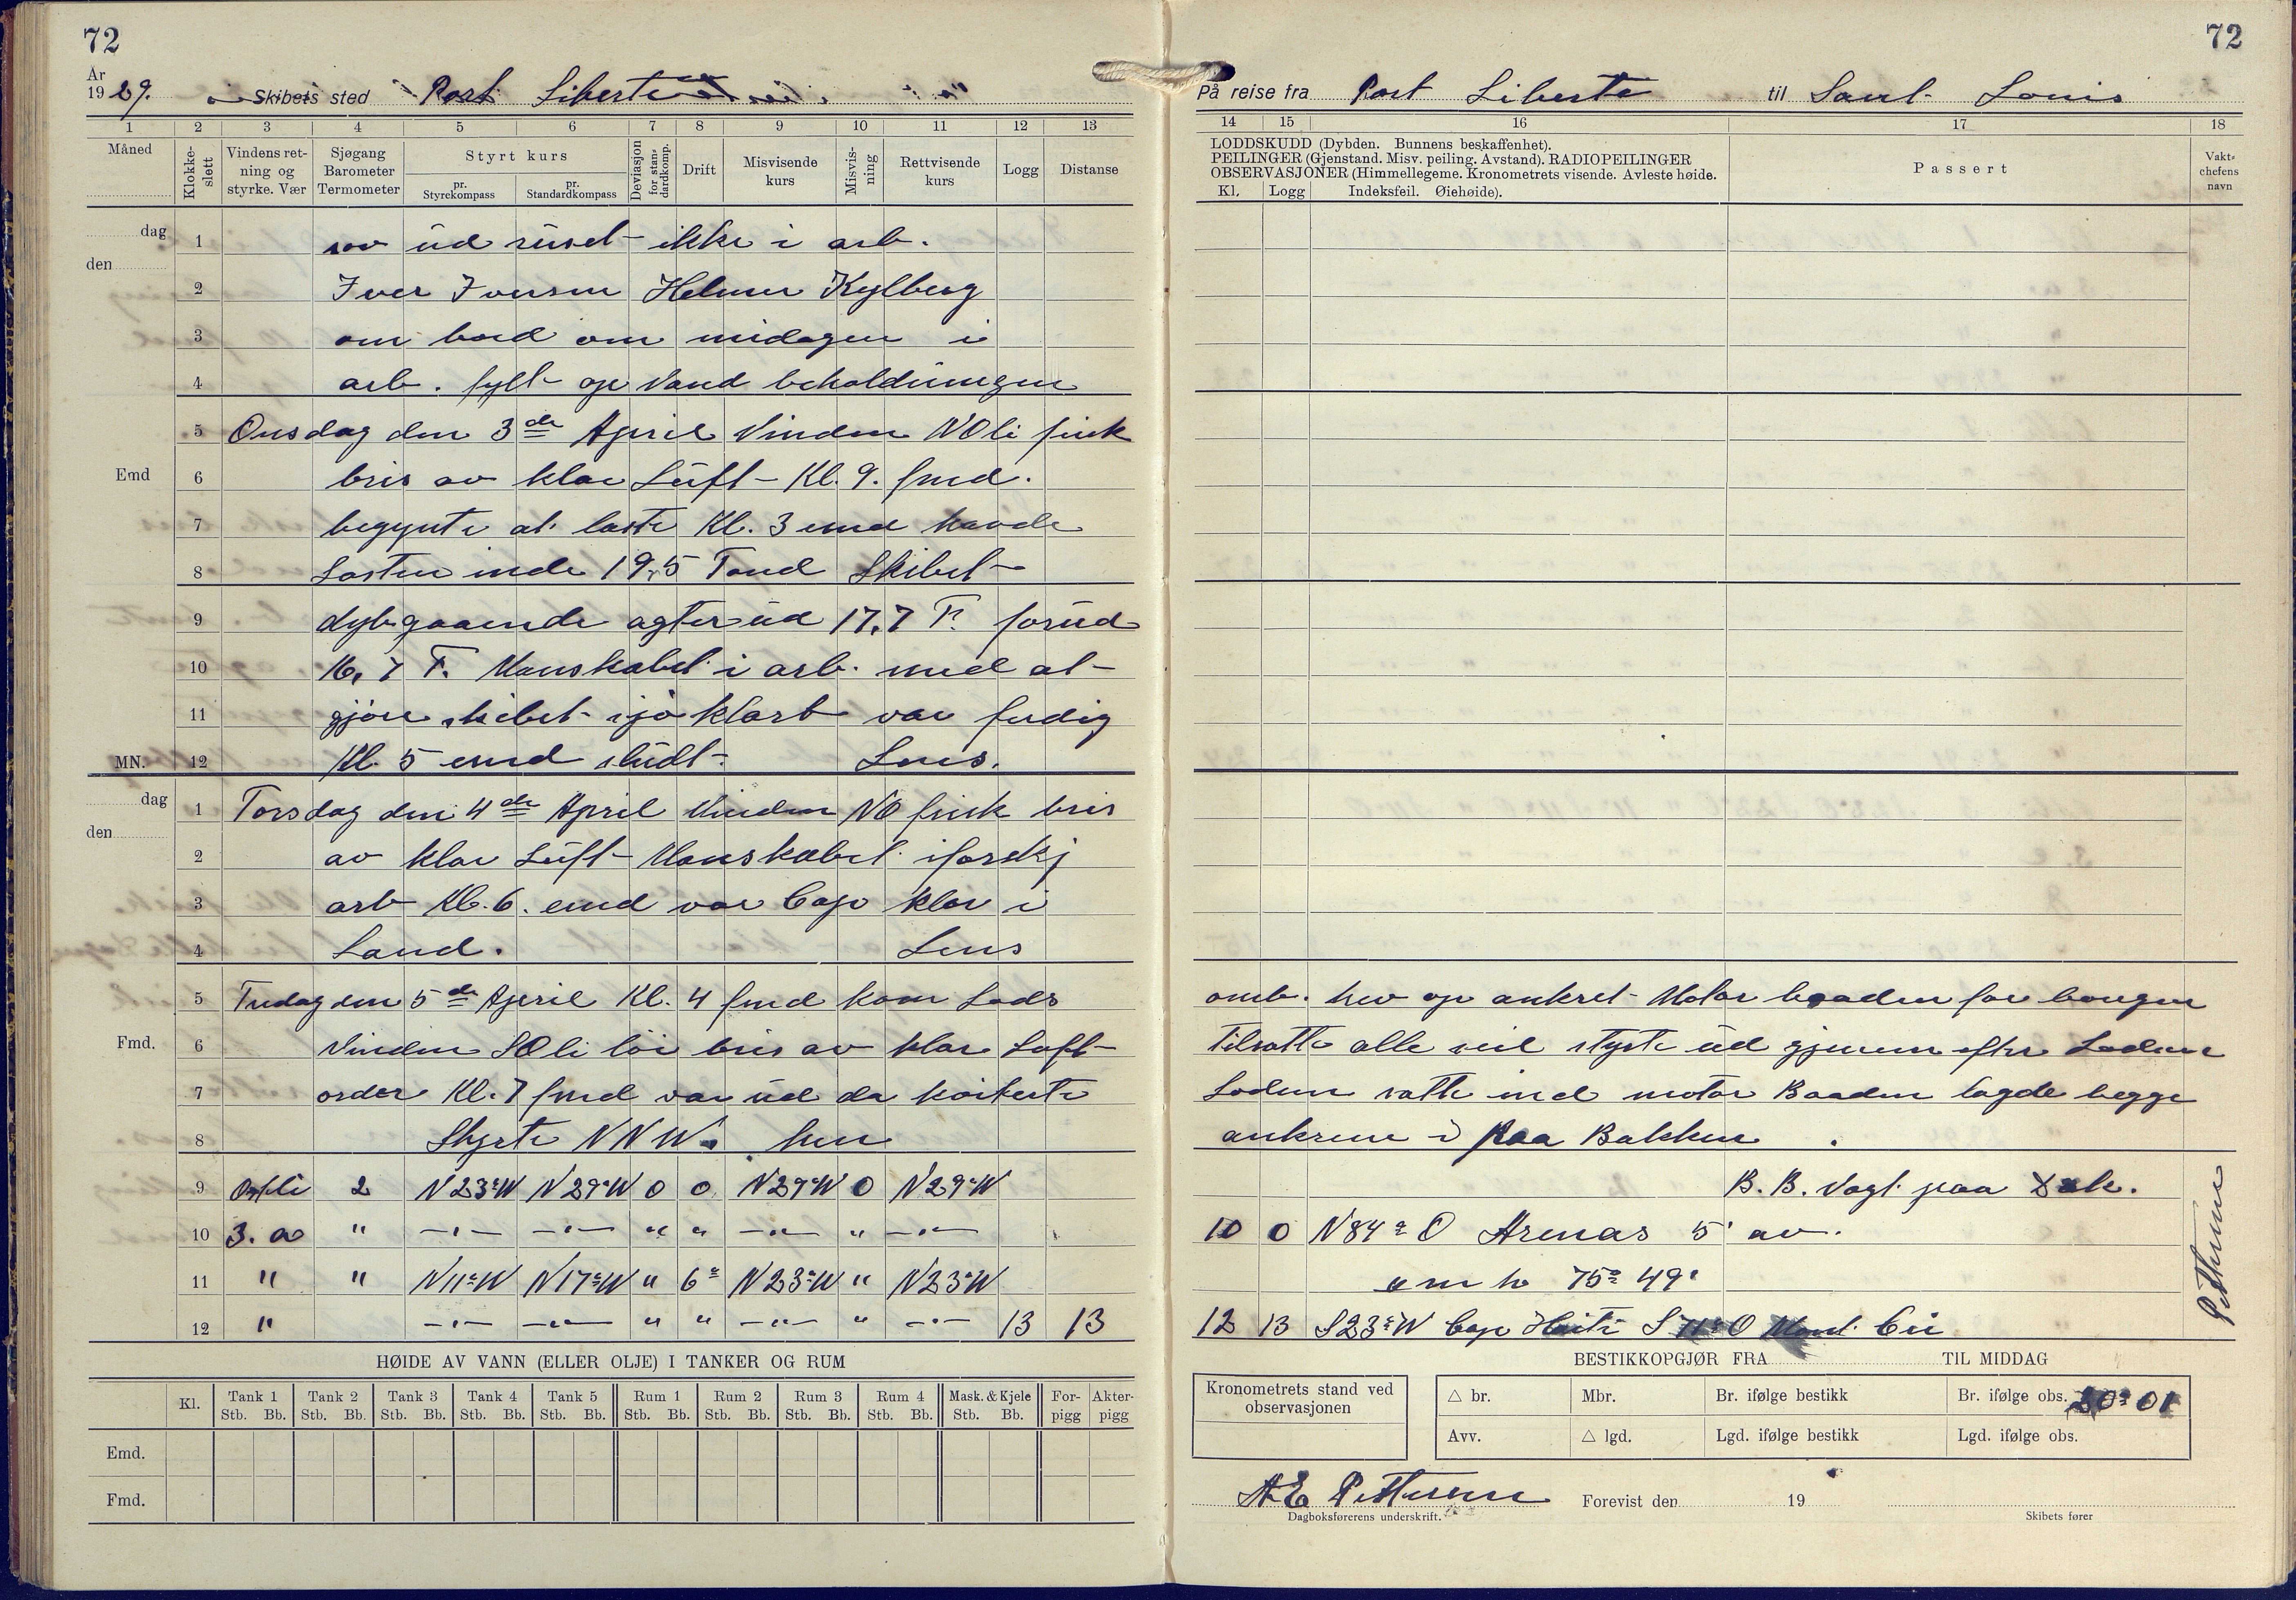 72
År
1929. Skibets sted Port Liberte
1 2 3 4 5 6 7 8 9 10 11 12 13
Måned
Klokkeslett
Vindens retning og styrke. Vær
Sjøgang Barometer Termometer
Styrt kurs
pr. Styrekompass
pr. Standardkompass
Deviasjon for standardkomp.
Drift
Misvisende kurs
Misvisning
Rettvisende kurs
Logg
Distanse
dag 1 sov ud ruset ikke i arb.
den
2 Iver Iversen Helmer Kylberg
3 om bord om midagen i
4 arb. fylt op Vand beholdningen
5 Onsdag den 3de April Vinden NOli frisk
Emd 6 bris av klar Luft Kl. 9. fmd.
7 begynte at laste Kl. 3 emd havde
8 Lasten inde 19,5 Tond Skibet
9 dybgaaende agterud 17,7 F. forud
10 16,7 F. Manskabet i arb. med at
11 gjøre skibet sjøklart var ferdig
MN. 12 Kl. 5 emd sludt. Lens.
dag 1 Torsdag den 4de April Vinden NO frisk bris
den
2 av klar Luft Manskabet i forskj
3 arb Kl. 6. emd var Cap klar i
4 Land. Lens
5 Fredag den 5de April Kl. 4 fmd kom Lods
Fmd. 6 Vinden SOli løi bris av klar Luft
7 order Kl. 7 fmd var ud da kviterte
8 Styrte NNW. hen
9 Ostli 2 N23°W N29°W 0 0 N29°W 0 N29°W
10 3. a " —"— —"— " " —"— " —"—
11 " " N11°W N17°W " 6° N23°W " N23°W
12 " —"— —"— " " —"— " —"— 13 13
HØIDE AV VANN (ELLER OLJE) I TANKER OG RUM
Kl. Tank 1 Tank 2 Tank 3 Tank 4 Tank 5 Rum 1 Rum 2 Rum 3 Rum 4 Mask. & Kjele For- Akter-
Stb. Bb. Stb. Bb. Stb. Bb. Stb. Bb. Stb. Bb. Stb. Bb. Stb. Bb. Stb. Bb. Stb. Bb. Stb. Bb. pigg pigg
Emd.
Fmd.
72
På reise fra Port Liberte til Sant Louis
14 15 16 17 18
LODDSKUDD (Dybden. Bunnens beskaffenhet).
PEILINGER (Gjenstand. Misv. peiling. Avstand). RADIOPEILINGER
OBSERVASJONER (Himmellegeme. Kronometrets visende. Avleste høide.
Kl. Logg Indeksfeil. Øiehøide).
Passert
Vaktchefens navn
omb. hev op ankret Motor baaden for bougen
tilsatte alle seil styrte ud gjenem efter Lodsen
Lodsen satte ind motor Baaden lagde begge
ankrene i paa Bakken.
B. B. Vagt paa Dæk.
10 0 N84° O Arenas 5' av.
om h 75° 49'
12 13 S23°W Cap Haiti S71°O Mont Cri
Pettersen
BESTIKKOPGJØR FRA TIL MIDDAG
Kronometrets stand ved observasjonen
△ br. Mbr. Br. ifølge bestikk Br. ifølge obs. 20° 01
Avv. △ lgd. Lgd. ifølge bestikk Lgd. ifølge obs.
A E Pettersen Forevist den 19
Dagboksførerens underskrift. Skibets fører